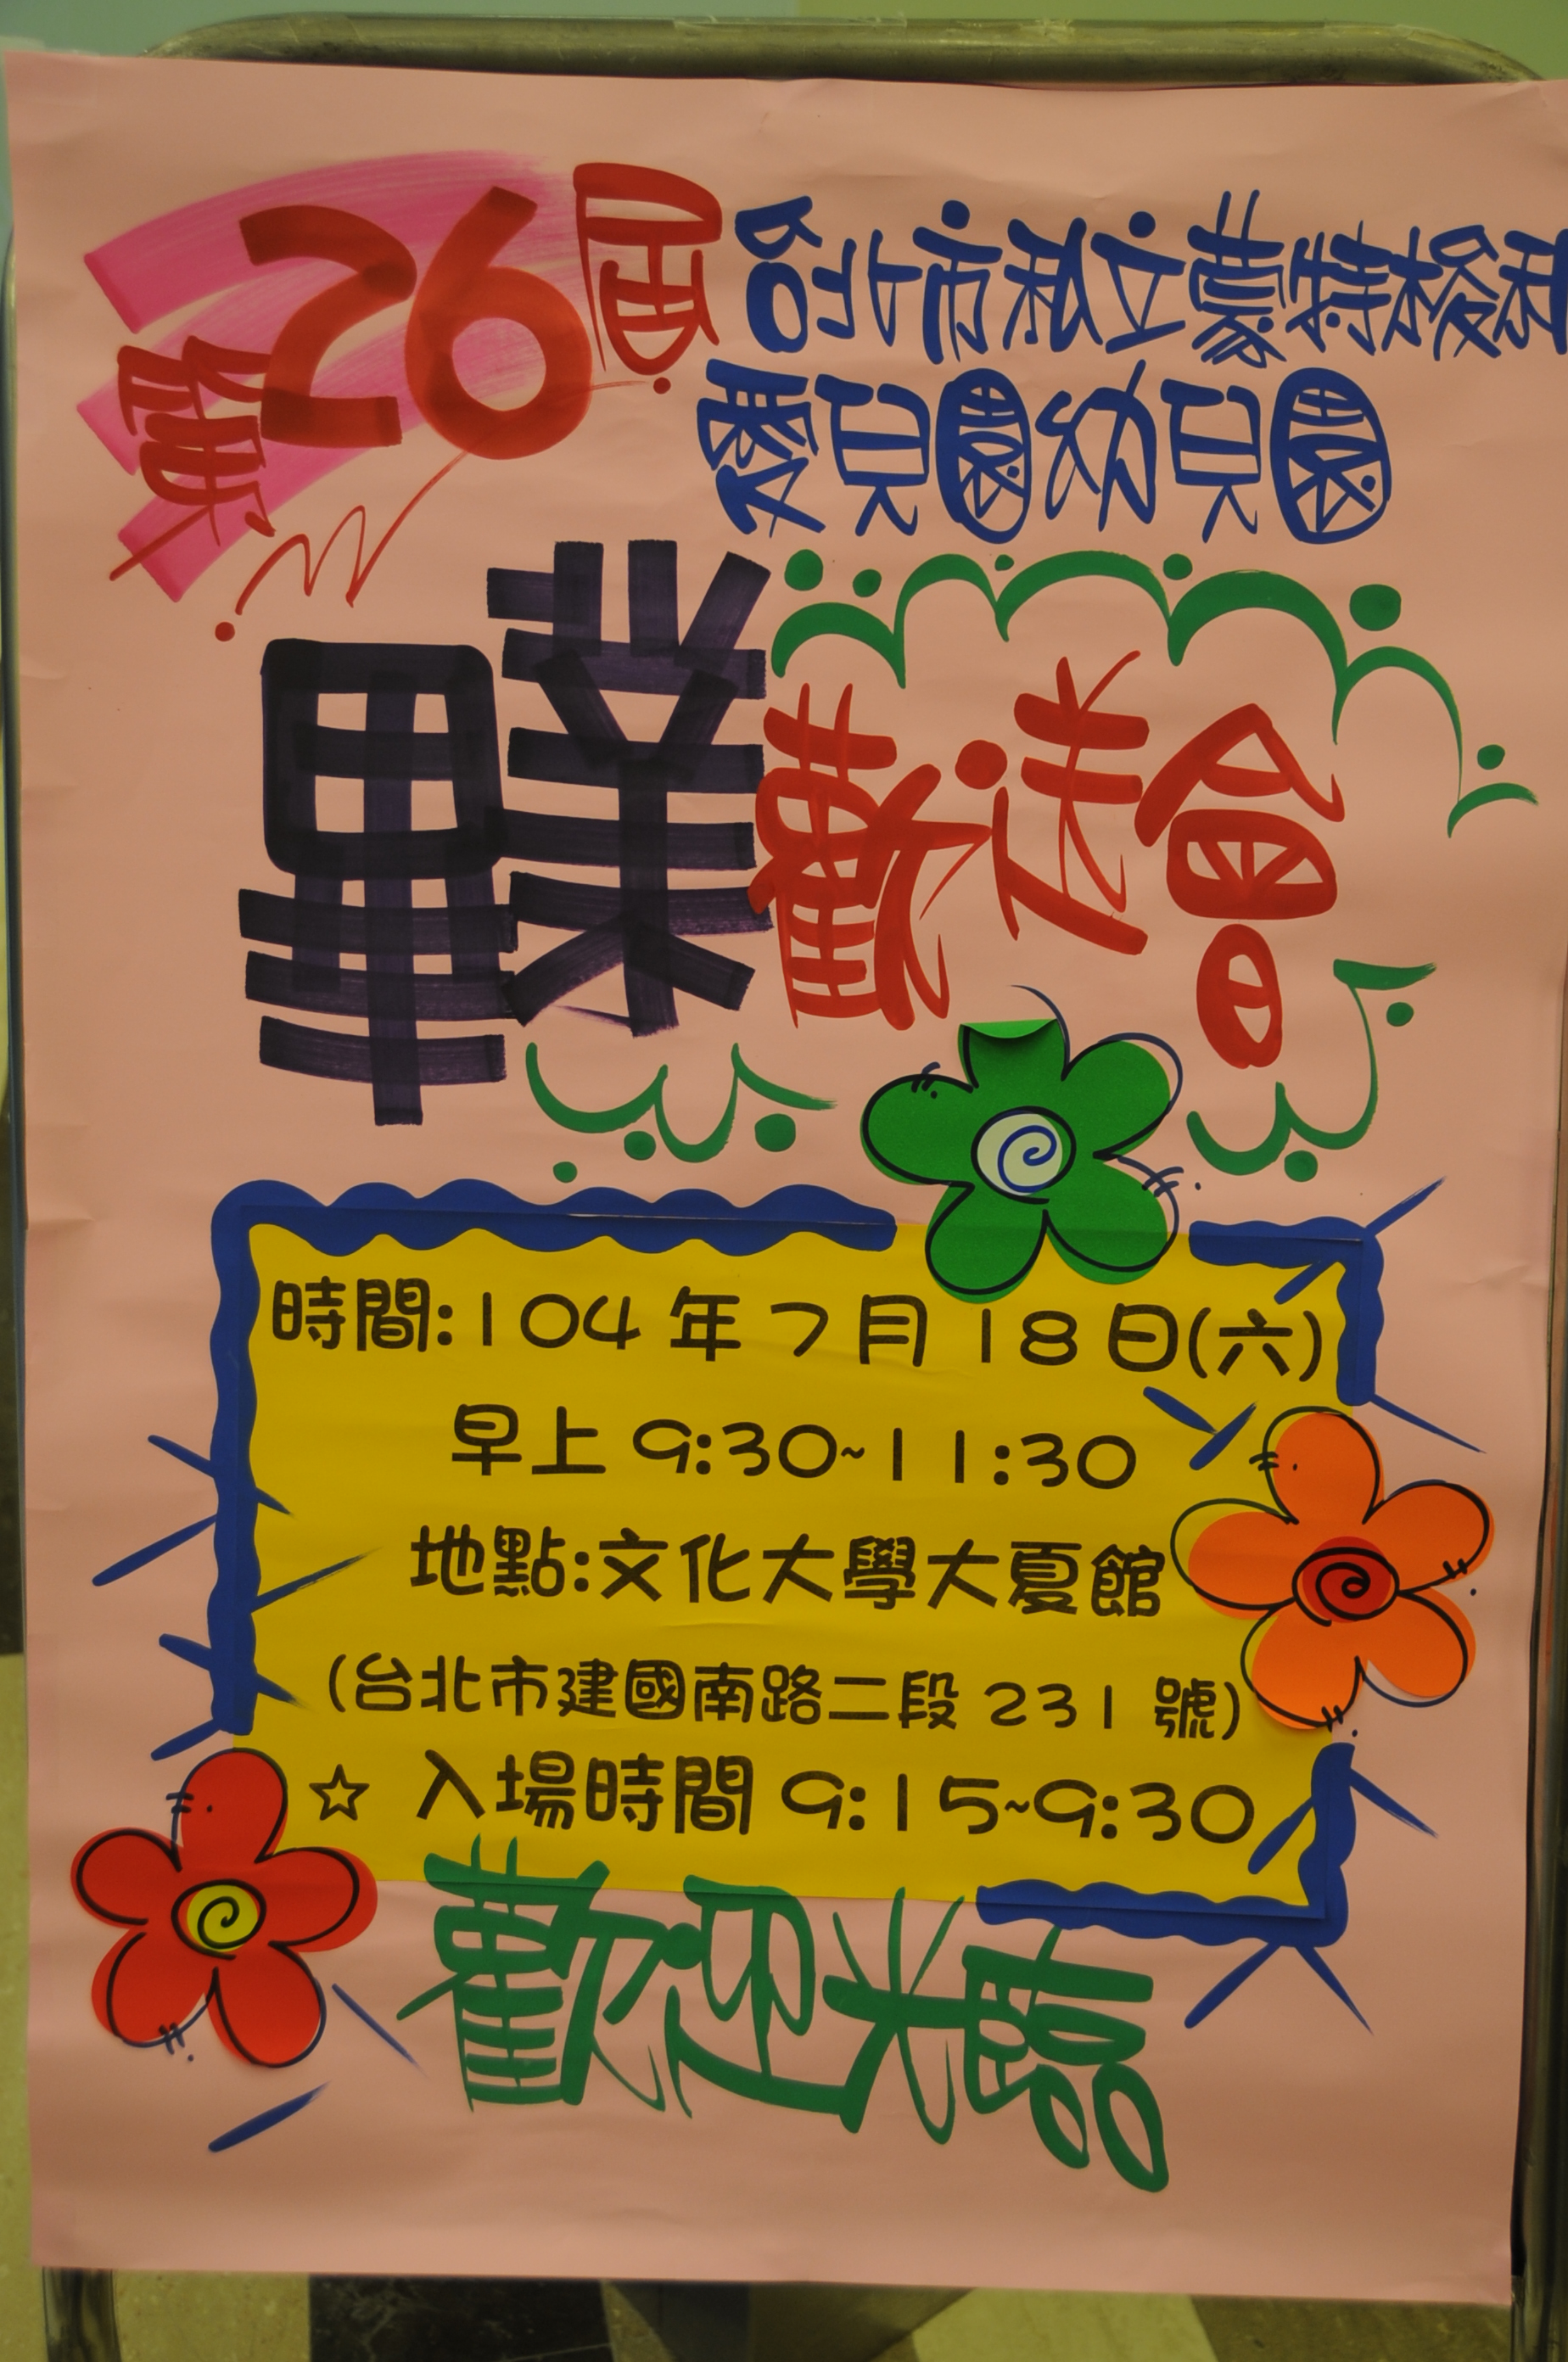 第26屆
台北市私立蒙特梭利
愛兒園幼兒園
畢業歡送會
時間:104年7月18日(六)
早上 9:30~11:30
地點:文化大學大夏館
(台北市建國南路二段 231 號)
☆ 入場時間 9:15~9:30
歡迎光臨